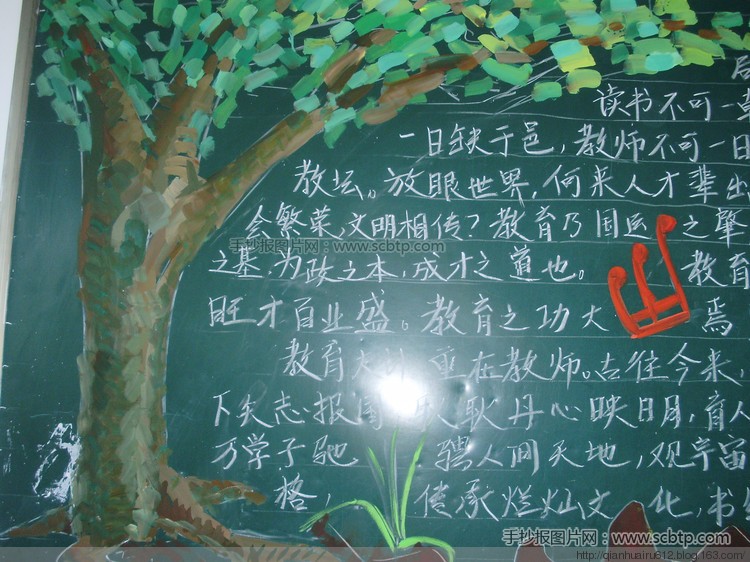 读书不可一
一日缺于邑，教师不可一日
教坛。放眼世界，何来人才辈出
会繁荣，文明相传？教育乃国运之肇
手抄报图片网：www.scbtp.com
之基，为政之本，成才之道也。 教育
旺才百业盛。教育之功大 焉
教育大计 重在教师。古往今来，
下矢志报国 耿耿丹心映日月，育人
万学子驰 骋人间天地，观宇宙
格， 传承烂灿文化，书
手抄报图片网：www.scbtp.com
http://qianhuairu612.blog.163.com/